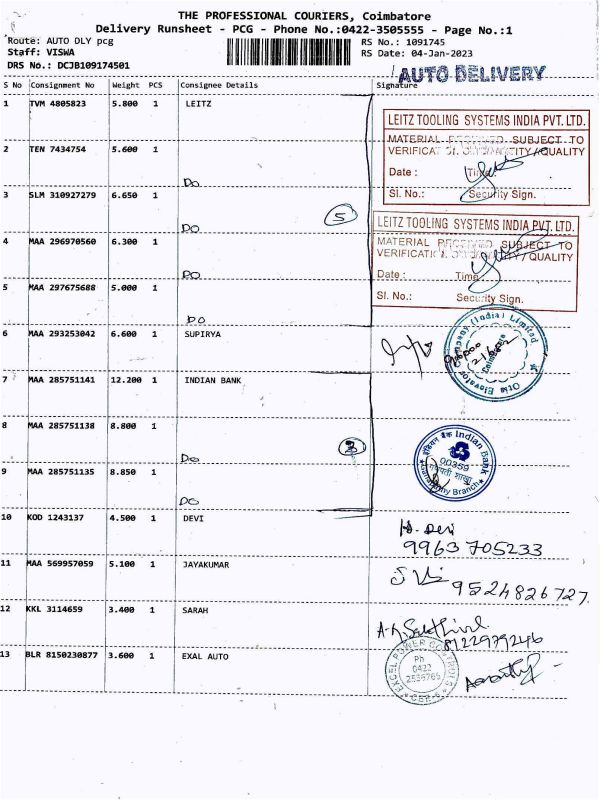 THE PROFESSIONAL COURIERS, Coimbatore
Delivery Runsheet - PCG - Phone No.:0422-3505555 - Page No.:1
Route: AUTO DLY pcg
RS No.: 1091745
Staff: VISWA
RS Date: 04-Jan-2023
DRS No.: DCJB109174501
AUTO DELIVERY
S No Consignment No Weight PCS Consignee Details Signature
1 TVM 4805823 5.800 1 LEITZ
LEITZ TOOLING SYSTEMS INDIA PVT. LTD.
MATERIAL RECEIVED SUBJECT TO
QUALITY
Date : Time
Sl. No.: Security Sign.
2 TEN 7434754 5.600 1
DO
3 SLM 310927279 6.650 1
5
DO
LEITZ TOOLING SYSTEMS INDIA PVT. LTD.
MATERIAL RECEIVED SUBJECT TO
QUALITY
Date : Time
Sl. No.: Security Sign.
4 MAA 296970560 6.300 1
DO
5 MAA 297675688 5.000 1
DO
6 MAA 293253042 6.600 1 SUPIRYA
Otis Elevator Company (India) Limited
7 MAA 285751141 12.200 1 INDIAN BANK
8 MAA 285751138 8.800 1
3
DO
इंडियन बैंक Indian Bank
00359
गणपती शाखा
Branch
9 MAA 285751135 8.850 1
DO
10 KOD 1243137 4.500 1 DEVI
H. Devi
9963 705233
11 MAA 569957059 5.100 1 JAYAKUMAR
9524826727
12 KKL 3114659 3.400 1 SARAH
8122979246
13 BLR 8150230877 3.600 1 EXAL AUTO
EXCEL POWER CONTROLS
Ph
0422
2536765